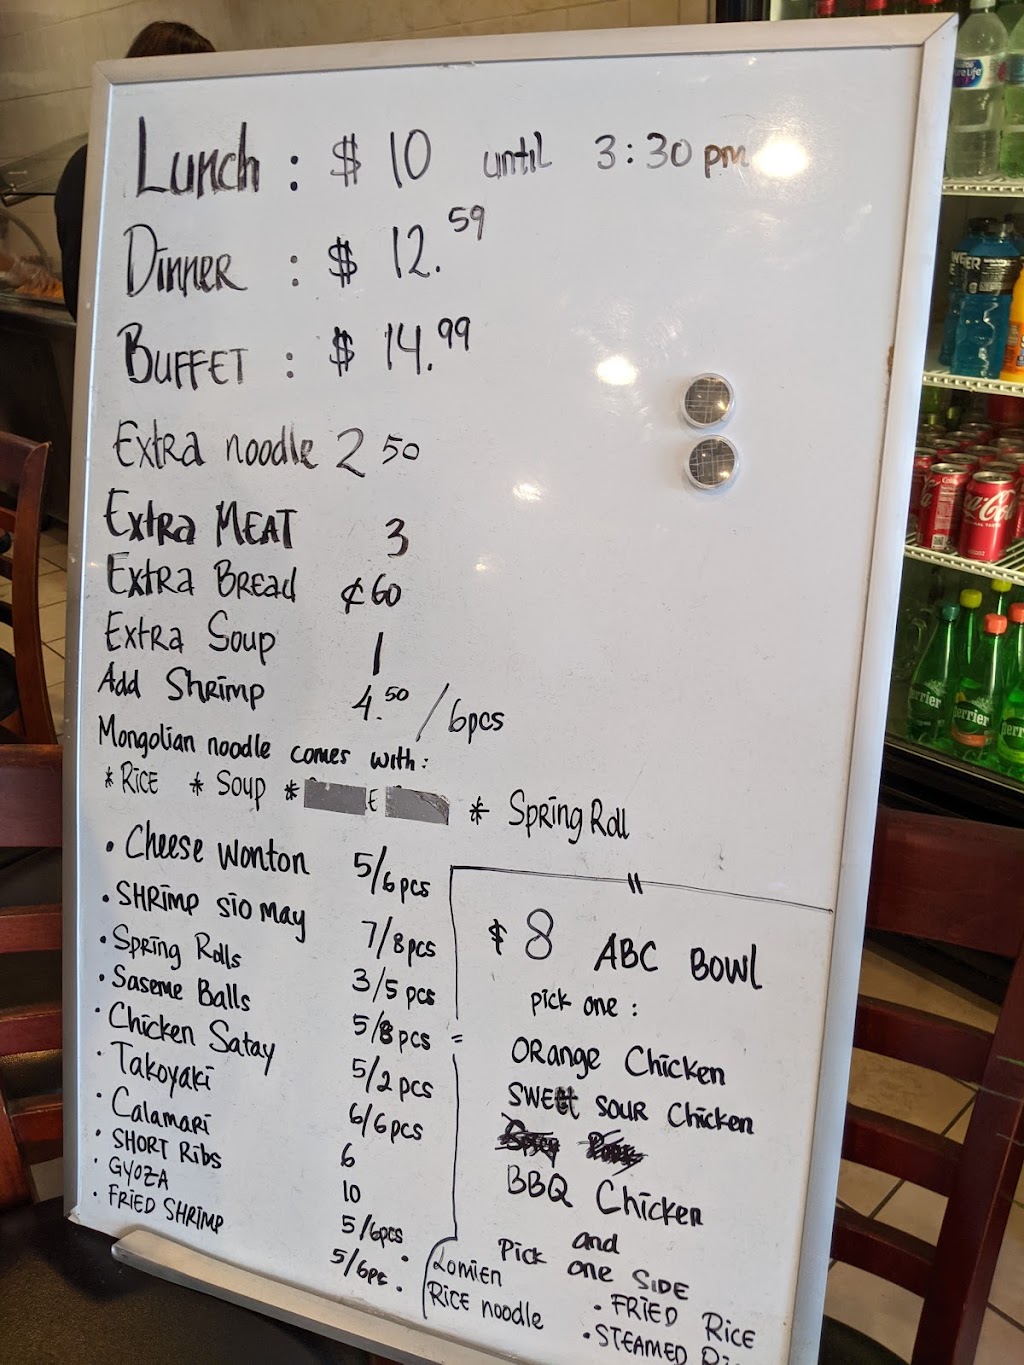 Lunch : $ 10 until 3:30 pm
Dinner : $ 12.59
BUFFET : $ 14.99
Extra noodle 2 50
Extra MEAT 3
Extra Bread ¢60
Extra Soup 1
Add Shrimp 4.50 / 6pcs
Mongolian noodle comes with:
* RICE * Soup * E * Spring Roll
• Cheese wonton 5/6pcs
• SHRIMP SIO MAY 7/8pcs
• Spring Rolls 3/5 pcs
• Saseme Balls 5/8pcs
• Chicken Satay 5/2pcs
• Takoyaki 6/6pcs
• Calamari 6
• SHORT Ribs 10
• GYOZA 5/6pcs
• FRIED SHRIMP 5/6pc
$ 8 ABC BOWL
pick one :
ORange Chicken
SWEET SOUR Chicken
BBQ Chicken
and
Pick one SIDE
• Lomien
• RICE noodle
• FRIED RICE
• STEAMED
Coca-Cola
Perrier
Perrier